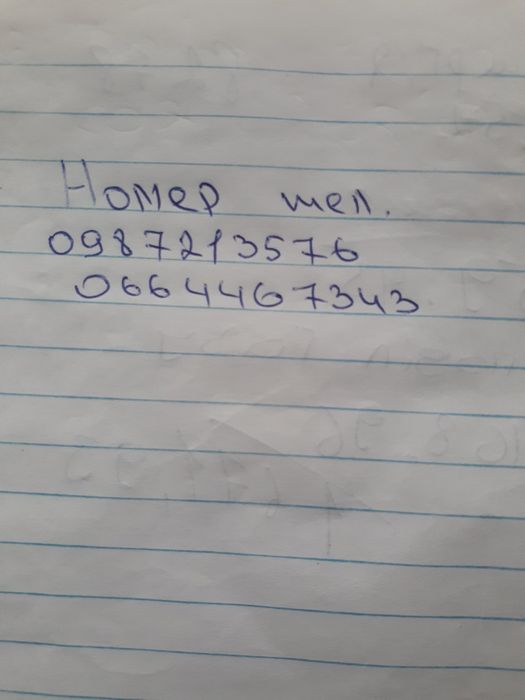 Номер тел.
0987213576
0664467343